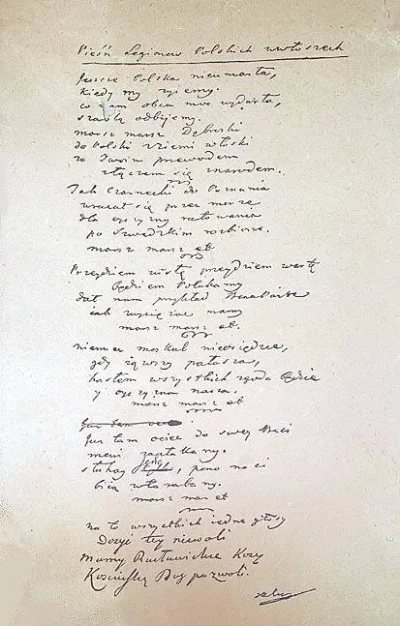 Pieśń Legionów Polskich we Włoszech
Jeszcze Polska nie umarła,
kiedy my żyiemy.
co nam obca moc wydarła,
szablą odbijemy.
marsz marsz Dąbroski
do Polski z ziemi włoski
za Twoim przewodem
złączem się z narodem.
Jak Czarnecki do Poznania
wracał się przez morze
dla oyczyzny ratowania
po Szwedzkim rozbiorze.
marsz marsz etc
Przeydziem wisłę przeydziem wartę
Będziem Polakamy
dał nam przykład Bonaparte
iak zwyciężać mamy
marsz marsz etc.
niemiec moskal nieosiędzie,
gdy iąwszy pałasza,
hasłem wszystkich zgoda będzie
y oyczyzna nasza.
marsz marsz etc
Już tam
Już tam ociec do swey Basi
mówi zapłakany.
słuchay, pono nasi
biią w tarabany.
marsz marsz etc
na to wszystkich iedne głosy
Dosyć tey niewoli
Mamy Racławickie Kosy
Kosciuszkę Bóg pozwoli.